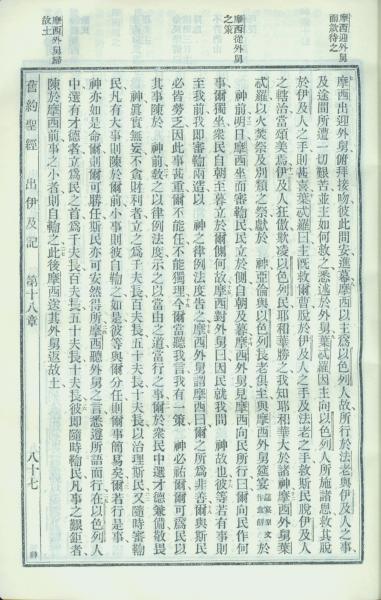 摩西迎外舅
而款待之
摩西從外舅
之策
摩西外舅歸
故土
摩西出迎外舅俯拜接吻彼此問安進幕摩西以主爲以色列人故所行於法老與伊及人之事
及途間所遭一切艱苦並主如何救之悉述於外舅葉忒羅因主向以色列人所施諸恩救其脫
於伊及人之手則甚喜葉忒羅曰主既救爾曹脫於伊及人之手及法老之手救斯民脫伊及人
之轄治當頌美焉伊及人狂傲欺凌以色列民耶和華勝之我知耶和華大於諸神摩西外舅葉
忒羅以火焚祭及別類之祭獻於 神亞倫與以色列長老俱至與摩西外舅筵宴於
神前明日摩西坐而審鞫民民立於側自朝及暮摩西外舅見摩西向民所行曰爾向民作何
事爾獨坐衆民自朝至暮立於爾側何故摩西對外舅曰因民就我問 神故也彼等若有事則
至我前我即審鞫兩造以 神之律例法度告之摩西外舅謂摩西曰爾之所爲非善爾與斯民
必皆勞乏因此事甚重爾不能任不能獨理今爾當聽我言我有一策 神必祐爾爾可爲民以
其事陳於 神前敎之以律例法度示之以當由之道當行之事爾於衆民中選才德兼備敬畏
神眞實無妄不貪財利者立之爲千夫長百夫長五十夫長十夫長以治理斯民又隨時審鞫
民凡有大事則陳於爾前小事則彼自鞫之如是彼等與爾分任則爾事簡易矣爾若行是事
神亦如是命爾則爾可勝任斯民亦可安然得所摩西聽外舅之言悉遵所語而行在以色列人
中選有才德者立爲民之首爲千夫長百夫長五十夫長十夫長彼即隨時鞫民凡事之艱鉅者
陳於摩西前事之小者則自鞫之此後摩西送其外舅返故土
舊約聖經 出伊及記 第十八章 八十七